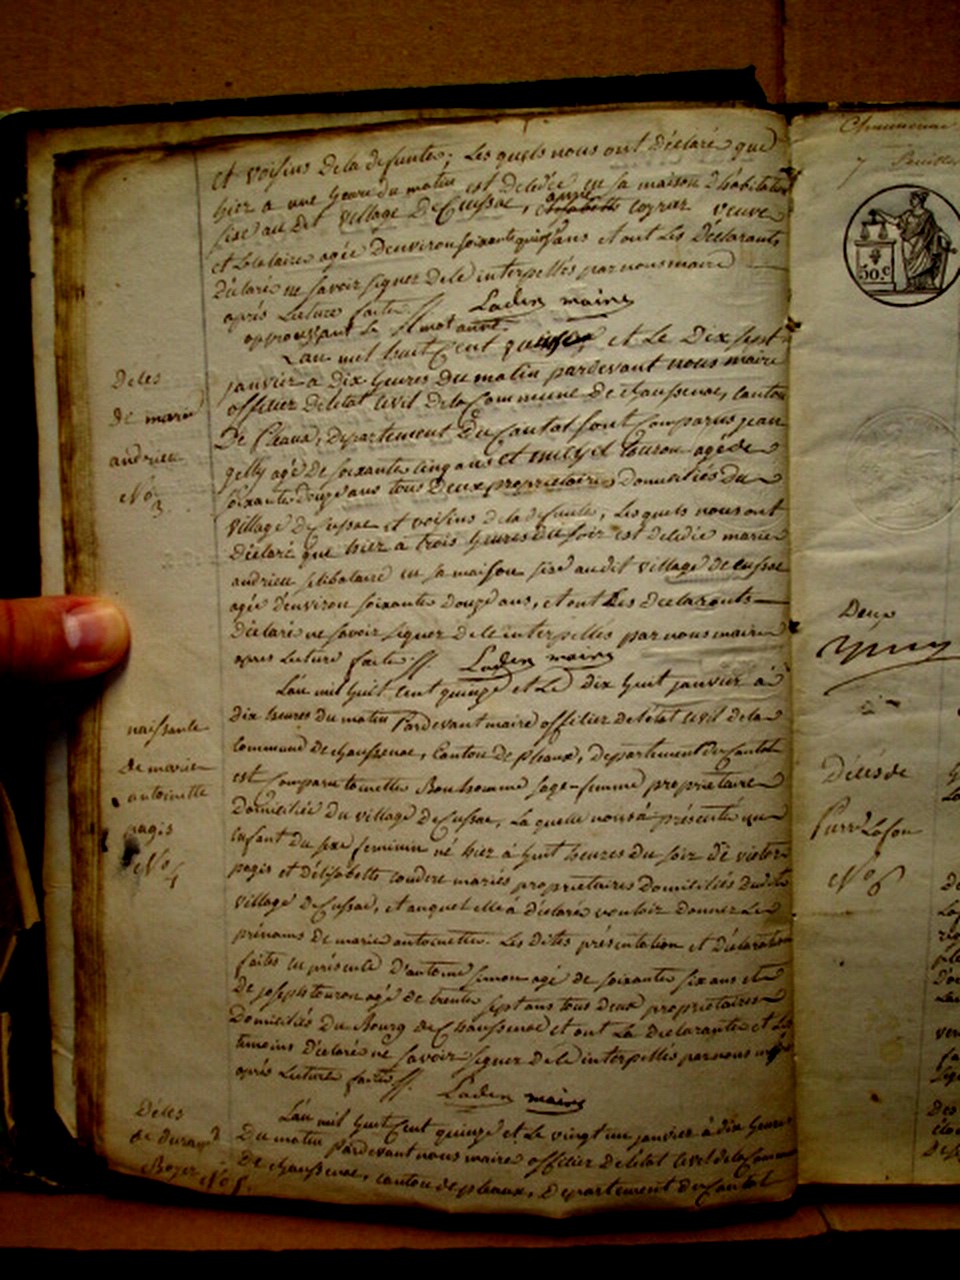 et voisins de la defunte; Les quels nous ont déclaré que
hier a une heure du matin est deledée en sa maison d'habitation
sise au dit village De Cussac, anne coyrier veuve
et Selelaire agée denviron soixante quinze ans et ont Les Déclarants
Déclaré ne savoir signer de le interpellés par nous maire
après Lecture faite. Laden maire
approuvant le mot anne
L'an mil huit Cent quinze et Le Dix sept
janvier a Dix heures Du matin pardevant nous maire
officier De létat civil De la Commune De chaussenac, canton
De Pleaux, Departement Du Cantal sont Comparus jean
gelly agé De soixante cinq ans et touron agé de
soixante douze ans tous Deux proprietaires Domiciliés Du
village De Cussac et voisins De la defunte, Les quels nous ont
Déclaré que hier a trois heures du soir est deledée marie
andrieu selibataire en sa maison sise au dit village de cussac
agée d'environ soixante douze ans, et ont Les Declarants
Déclaré ne savoir signer De le interpellés par nous maire
apres Lecture faite. Laden maire
L'an mil huit cent quinze et Le dix huit janvier à
Dix heures Du matin Pardevant maire officier De létat civil De la
Commune De chaussenac, Canton De Pleaux, Departement Du Cantal
est Comparue toinette Bonhomme sage-femme propriétaire
Domiciliée Du village De Cussac, La quelle nous a présenté un
enfant Du sexe feminin né hier à huit heures Du soir De victor
pagis et Délisabette coudere mariés proprietaires Domiciliés Dudit
village De Cussac, et auquel elle à déclaré vouloir Donner Les
prénoms De marie antoinette. Les Dites présentation et Déclaration
faites en présence D'antoine simon agé de soixante six ans et
De joseph touron agé de trente sept ans tous Deux proprietaires
Domiciliés Du Bourg De Chaussenac et ont La Declarante et Les
temoins Déclaré ne savoir signer De le interpellés par nous maire
après Lecture faite. Laden maire
L'an mil huit Cent quinze et Le vingt un janvier à dix heures
Du matin Pardevant nous maire officier De létat civil De la Commune
De chaussenac, canton de pleaux, Departement Du Cantal
Déces
de marie
andrieu
No 3.
naissance
De marie
antoinette
pagis
No 4
Déces
de durand
Boyer No 5.
Chaussenac
7 feuillet
50.c
Deux
Décés de
Pierre Lafon
No 6